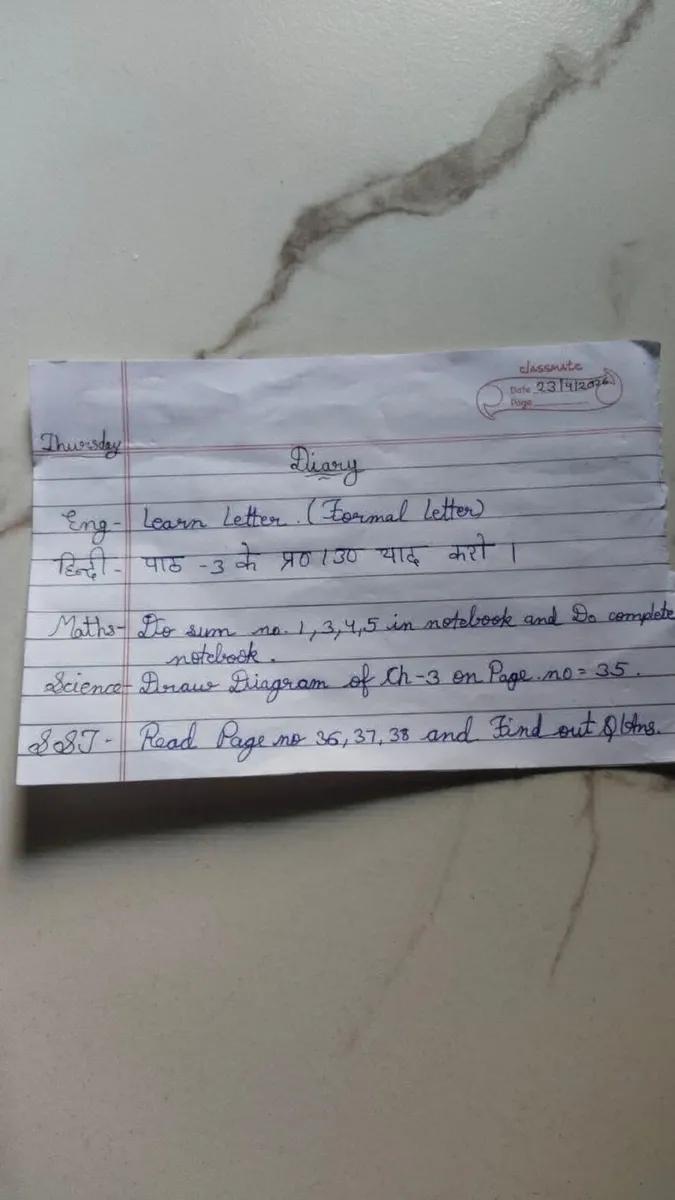 classmate
Date 23/4/2026
Page
Thursday
Diary
Eng- Learn Letter. (Formal Letter)
हिन्दी - पाठ -3 के प्र०/उ० याद करो ।
Maths- Do sum no. 1,3,4,5 in notebook and Do complete
notebook.
Science- Draw Diagram of Ch-3 on Page no = 35.
SST- Read Page no 36, 37, 38 and Find out Q/Ans.